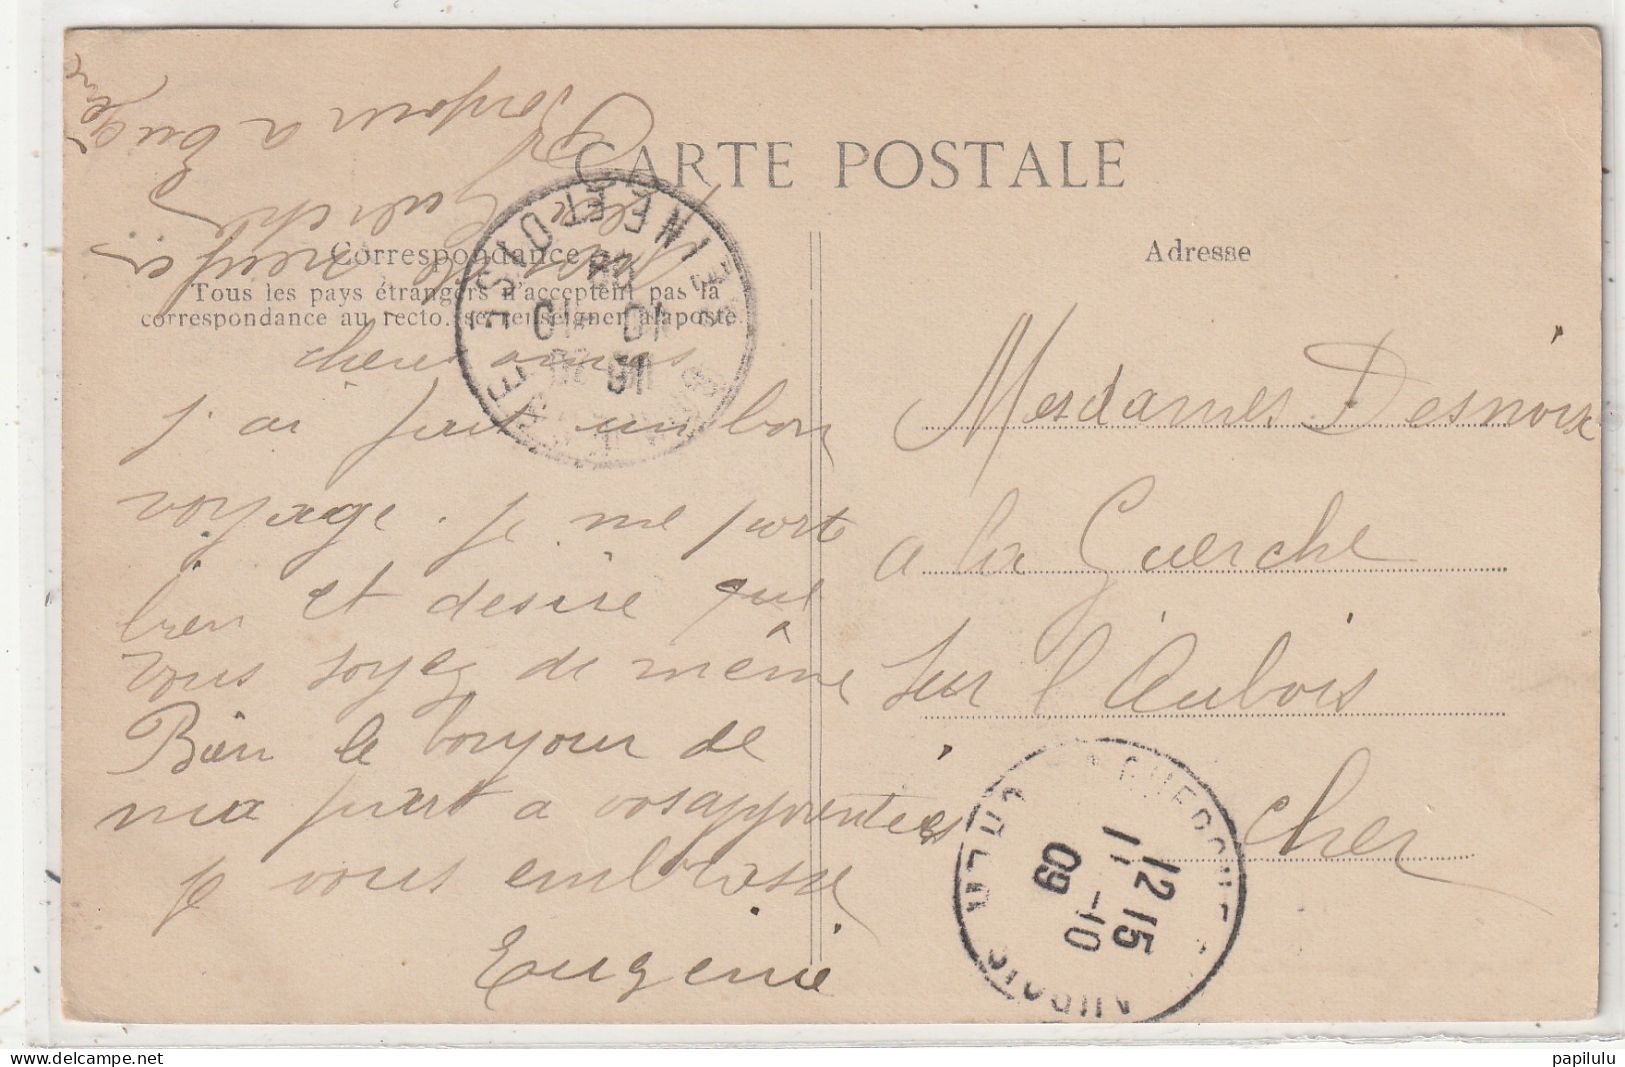 CARTE POSTALE
Correspondance
Tous les pays étrangers n'acceptent pas la
correspondance au recto. se renseigner à la poste.
Adresse
cheres amies
j ai fait un bon
voyage. je me porte
bien et desire que
vous soyez de même
Bien le bonjour de
ma part a vos apprenties
je vous embrasse
Eugenie
Bonjour a
Guerche
Mesdames Desnoix
a la Guerche
sur l'Aubois
Cher
SEINE ET OISE
10 -10
09
12 15
11 -10
09
papilulu
www.delcampe.net